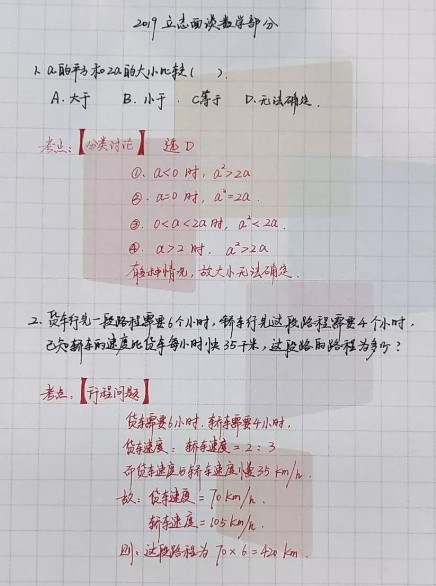 2019 立志面谈数学部分
1. a的平方和2a的大小比较( ).
A. 大于 B. 小于 . C等于 D. 无法确定.
考点:【分类讨论】 选 D
①. a<0 时, a²>2a
②. a=0 时, a²=2a.
③. 0<a<2a 时, a²<2a.
④. a>2 时, a²>2a
情况, 故大小无法确定.
2. 货车行完一段路程需要6个小时, 轿车行完这段路程需要4个小时.
已知轿车的速度比货车每小时快35千米, 这段路的路程为多少?
考点:【行程问题】
货车需要6小时. 轿车需要4小时.
货车速度: 轿车速度 = 2:3
货车速度与轿车速度 35 km/h.
故: 货车速度 = 70 km/h.
轿车速度 = 105 km/h.
则: 这段路程为 70×6=420 km.